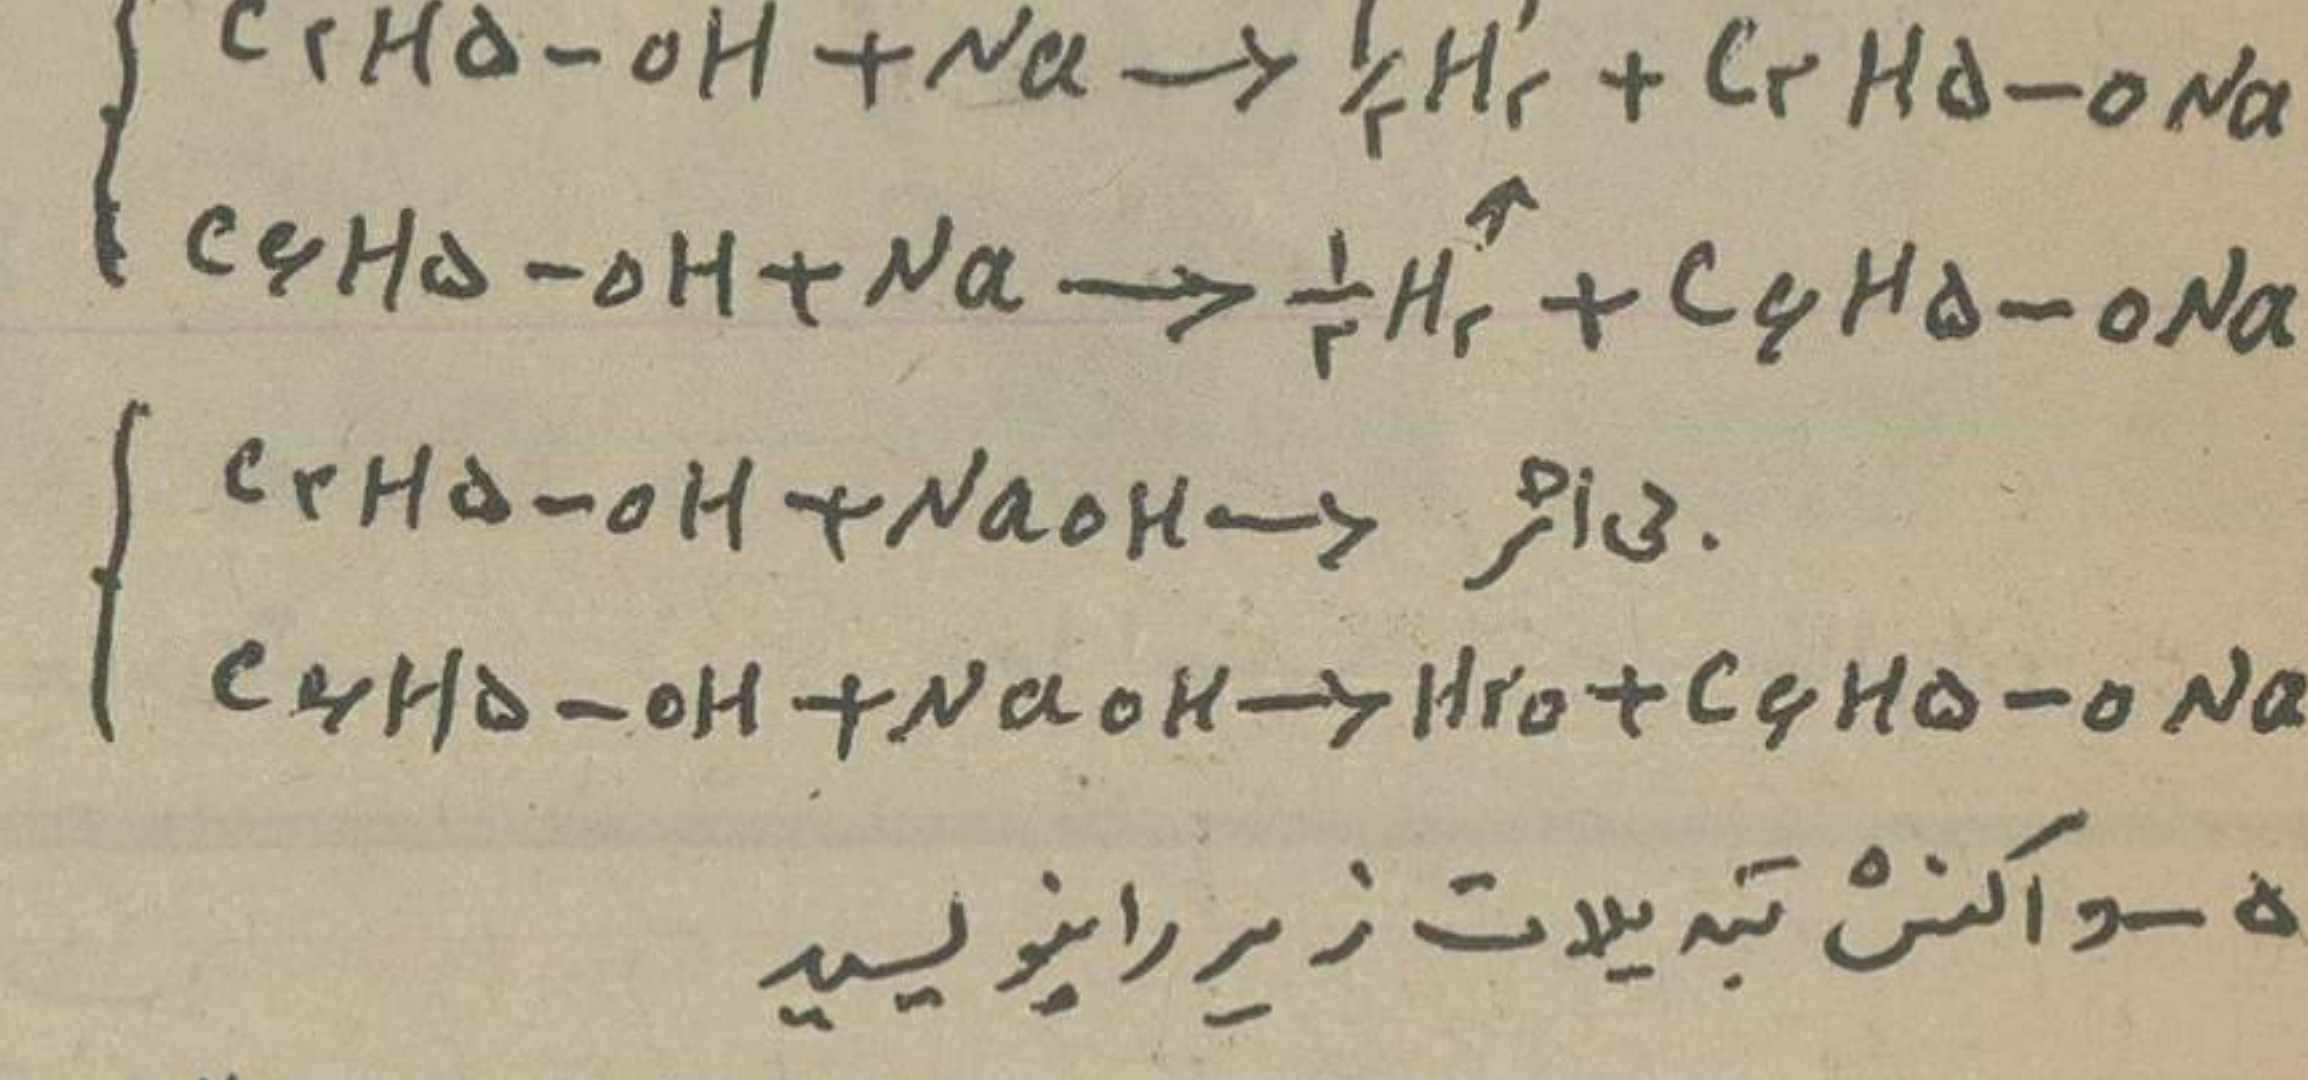 C۲H۵-OH + Na → ۱/۲ H۲↑ + C۲H۵-ONa
C۶H۵-OH + Na → ۱/۲ H۲↑ + C۶H۵-ONa
C۲H۵-OH + NaOH → بی اثر.
C۶H۵-OH + NaOH → H۲O + C۶H۵-ONa
۵-واکنش تبدیلات زیر را بنویسید